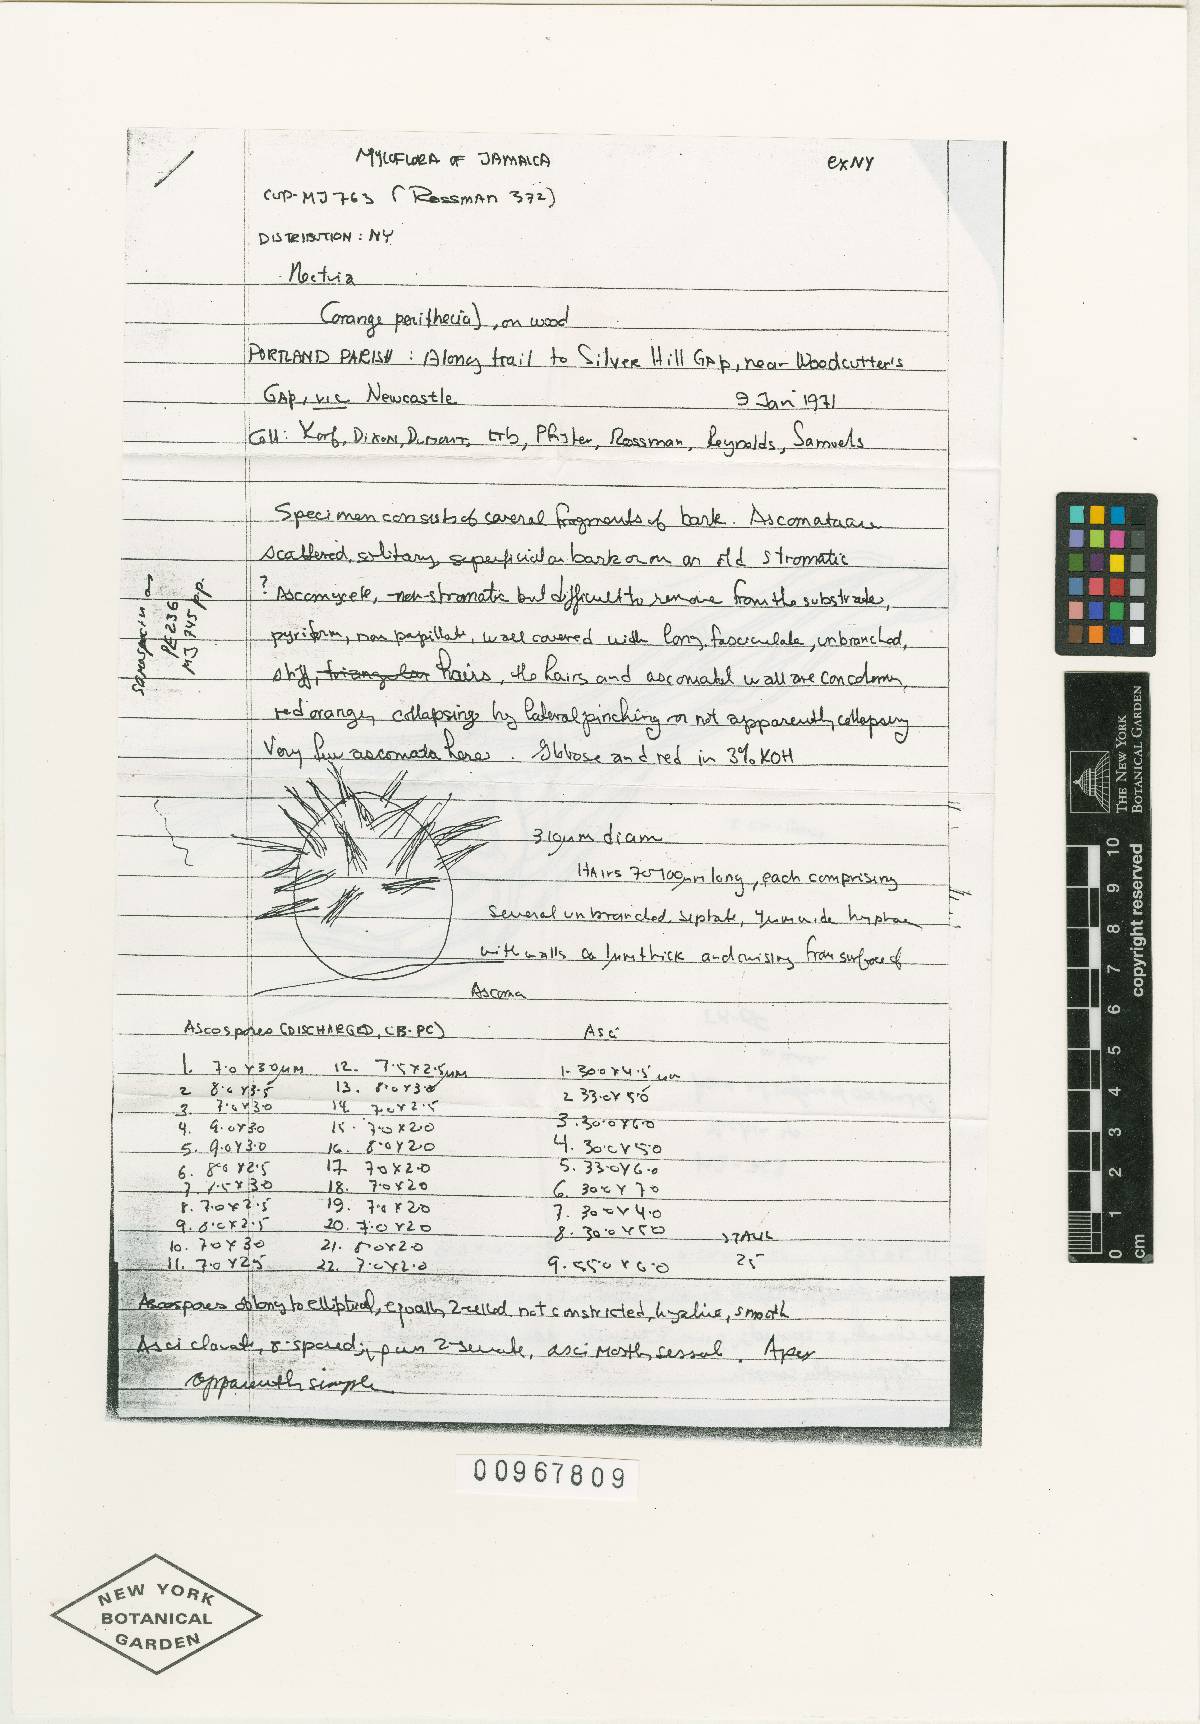 MYCOFLORA OF JAMAICA
exNY
CUP-MJ 763 (Rossman 372)
DISTRIBUTION: NY
Nectria
(orange perithecia), on wood
PORTLAND PARISH: Along trail to Silver Hill Gap, near Woodcutter's
Gap, vic Newcastle 9 Jan 1971
Coll: Korf, Dixon, Dumont, Erb, Pfister, Rossman, Reynolds, Samuels
Specimen consists of several fragments of bark. Ascomata are
scattered, solitary, superficial on bark or on an old stromatic
? Ascomycete, non-stromatic but difficult to remove from the substrate,
pyriform, non papillate, wall covered with long, fasciculate, unbranched,
stiff, triangular hairs, the hairs and ascomatal wall are concolorous,
red orange, collapsing by lateral pinching or not apparently collapsing
Very few ascomata here. Globose and red in 3% KOH
same specimen as
PE 236
MJ 745 pp.
310µm diam
Hairs 70-100µm long, each comprising
several unbranched, septate, 4µm wide hyphae
with walls ca 1µm thick and arising from surface of
Ascoma
Ascospores (DISCHARGED, CB-PC)
Asci
1. 7.0 x 3.0 µm 12. 7.5 x 2.5 µm 1. 30.0 x 4.5 µm
2 8.0 x 3.5 13. 8.0 x 3.0 2 33.0 x 5.0
3. 7.0 x 3.0 14. 7.0 x 2.5 3. 30.0 x 6.0
4. 9.0 x 3.0 15. 7.0 x 2.0 4. 30.0 x 5.0
5. 9.0 x 3.0 16. 8.0 x 2.0 5. 33.0 x 6.0
6. 8.0 x 2.5 17. 7.0 x 2.0 6. 30.0 x 7.0
7. 7.5 x 3.0 18. 7.0 x 2.0 7. 30.0 x 4.0
8. 7.0 x 2.5 19. 7.0 x 2.0 8. 30.0 x 5.0
9. 8.0 x 2.5 20. 7.0 x 2.0 STALK
10. 7.0 x 3.0 21. 8.0 x 2.0 25
11. 7.0 x 2.5 22. 7.0 x 2.0 9. 55.0 x 6.0
Ascospores oblong to elliptical, equally 2-celled not constricted, hyaline, smooth
Asci clavate, 8-spored, 2-seriate, asci mostly sessile. Apex
apparently simple
00967809
NEW YORK
BOTANICAL
GARDEN
THE NEW YORK
BOTANICAL GARDEN
copyright reserved
0 1 2 3 4 5 6 7 8 9 10
cm